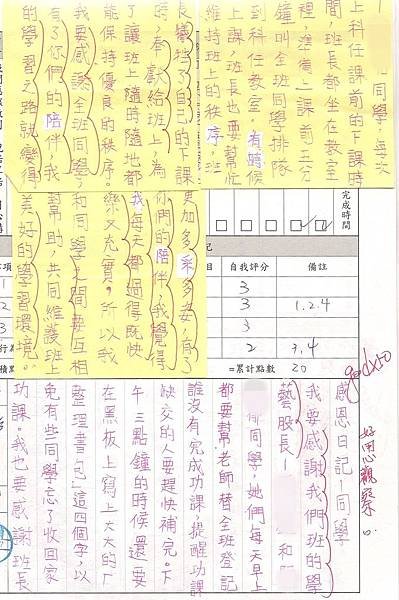 感恩日記—同學
我要感謝我們班的學
藝股長— 和
郁同學，她們每天早上
都要幫老師替全班登記
誰沒有完成功課，提醒功課
缺交的人要趕快補完。下
午三點鐘的時候，還要
在黑板上寫上大大的「
整理書包」這四個字，以
免有些同學忘了收回家
功課。我也要感謝班長
— 同學，每天
上科任課前的下課時
間，班長都坐在教室
裡，準備上課前三分
鐘叫全班同學排隊
到科任教室。有時候
上課，班長也要幫忙
維持班上的秩序。班
長犧牲了自己的下課
時，奉獻給班上，為
了讓班上隨時隨地都
能保持優良的秩序。
我要感謝全班同學，
有了你們的陪伴，我
的學習之路就變得
更加多采多姿，有了
你們的陪伴，我覺得
我每天都過得既快
樂又充實。所以我
和同學之間要互相
幫助，共同維護班上
美好的學習環境。
完成時間
記
項 目 自我評分 備註
1 3
2 3 1.2.4
3 3
行 2 3,4
積 =累計點數 20
好用心觀察